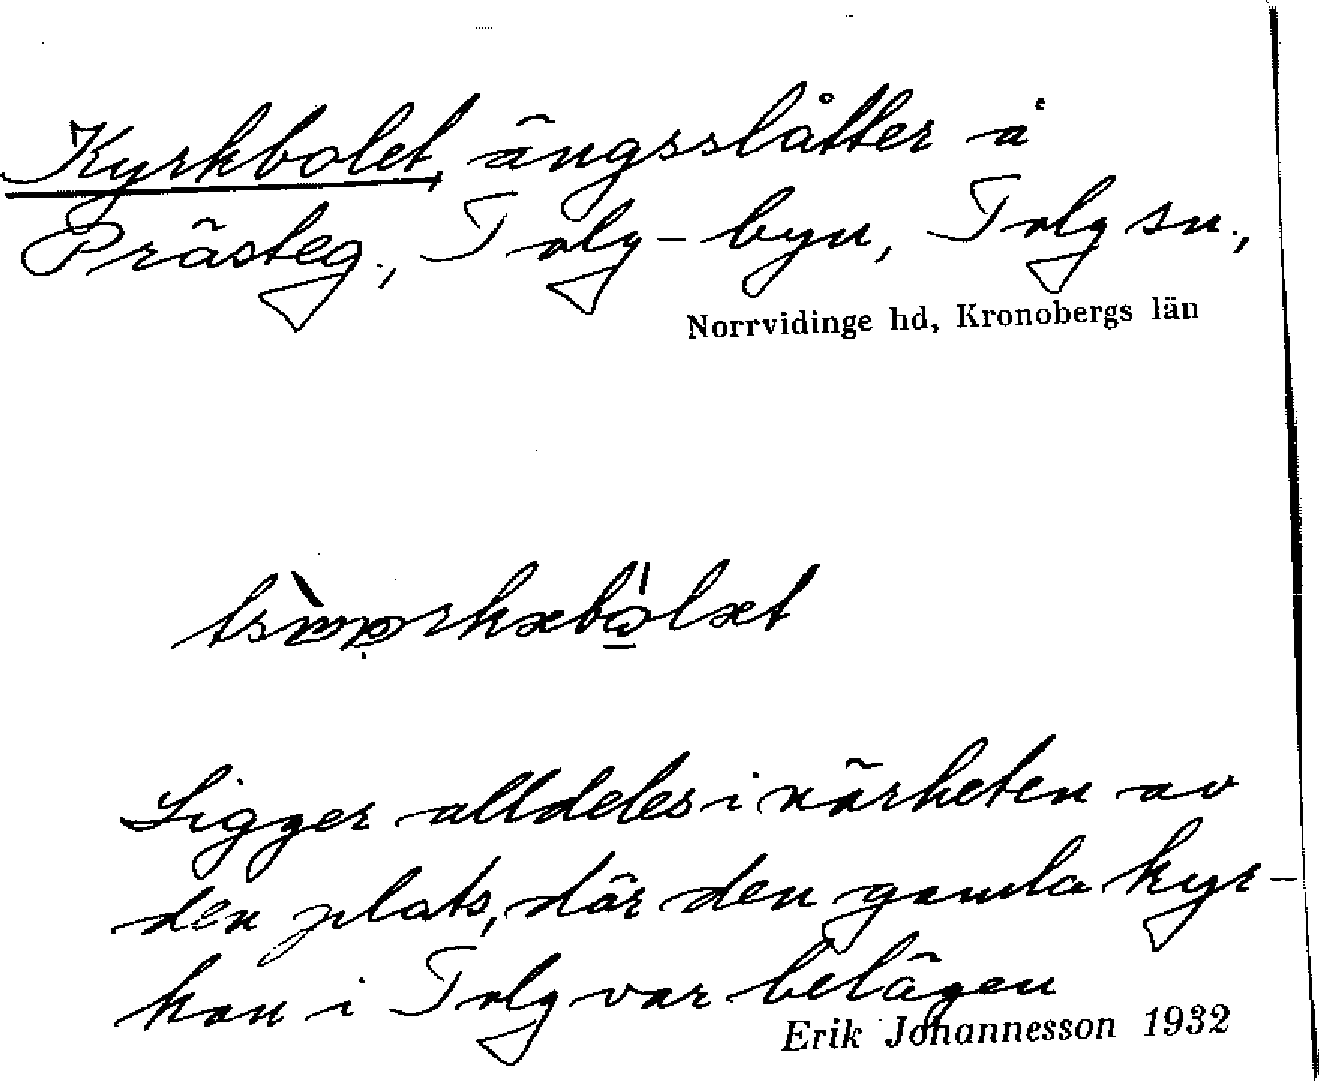 Kyrkbolet, ängsslåtter å
Prästeg., Tolg-byn, Tolg sn.,
Norrvidinge hd, Kronobergs län
Ligger alldeles i närheten av
den plats, där den gamla kyr-
kan i Tolg var belägen
Erik Johannesson 1932